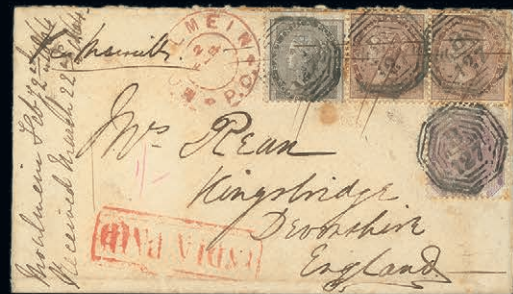 Moulmein Feb 
Received March 22
Marseilles
MEIN
P.O.
B
127
Mrs Rean
Kingsbridge
Devonshire
England
INDIA PAID